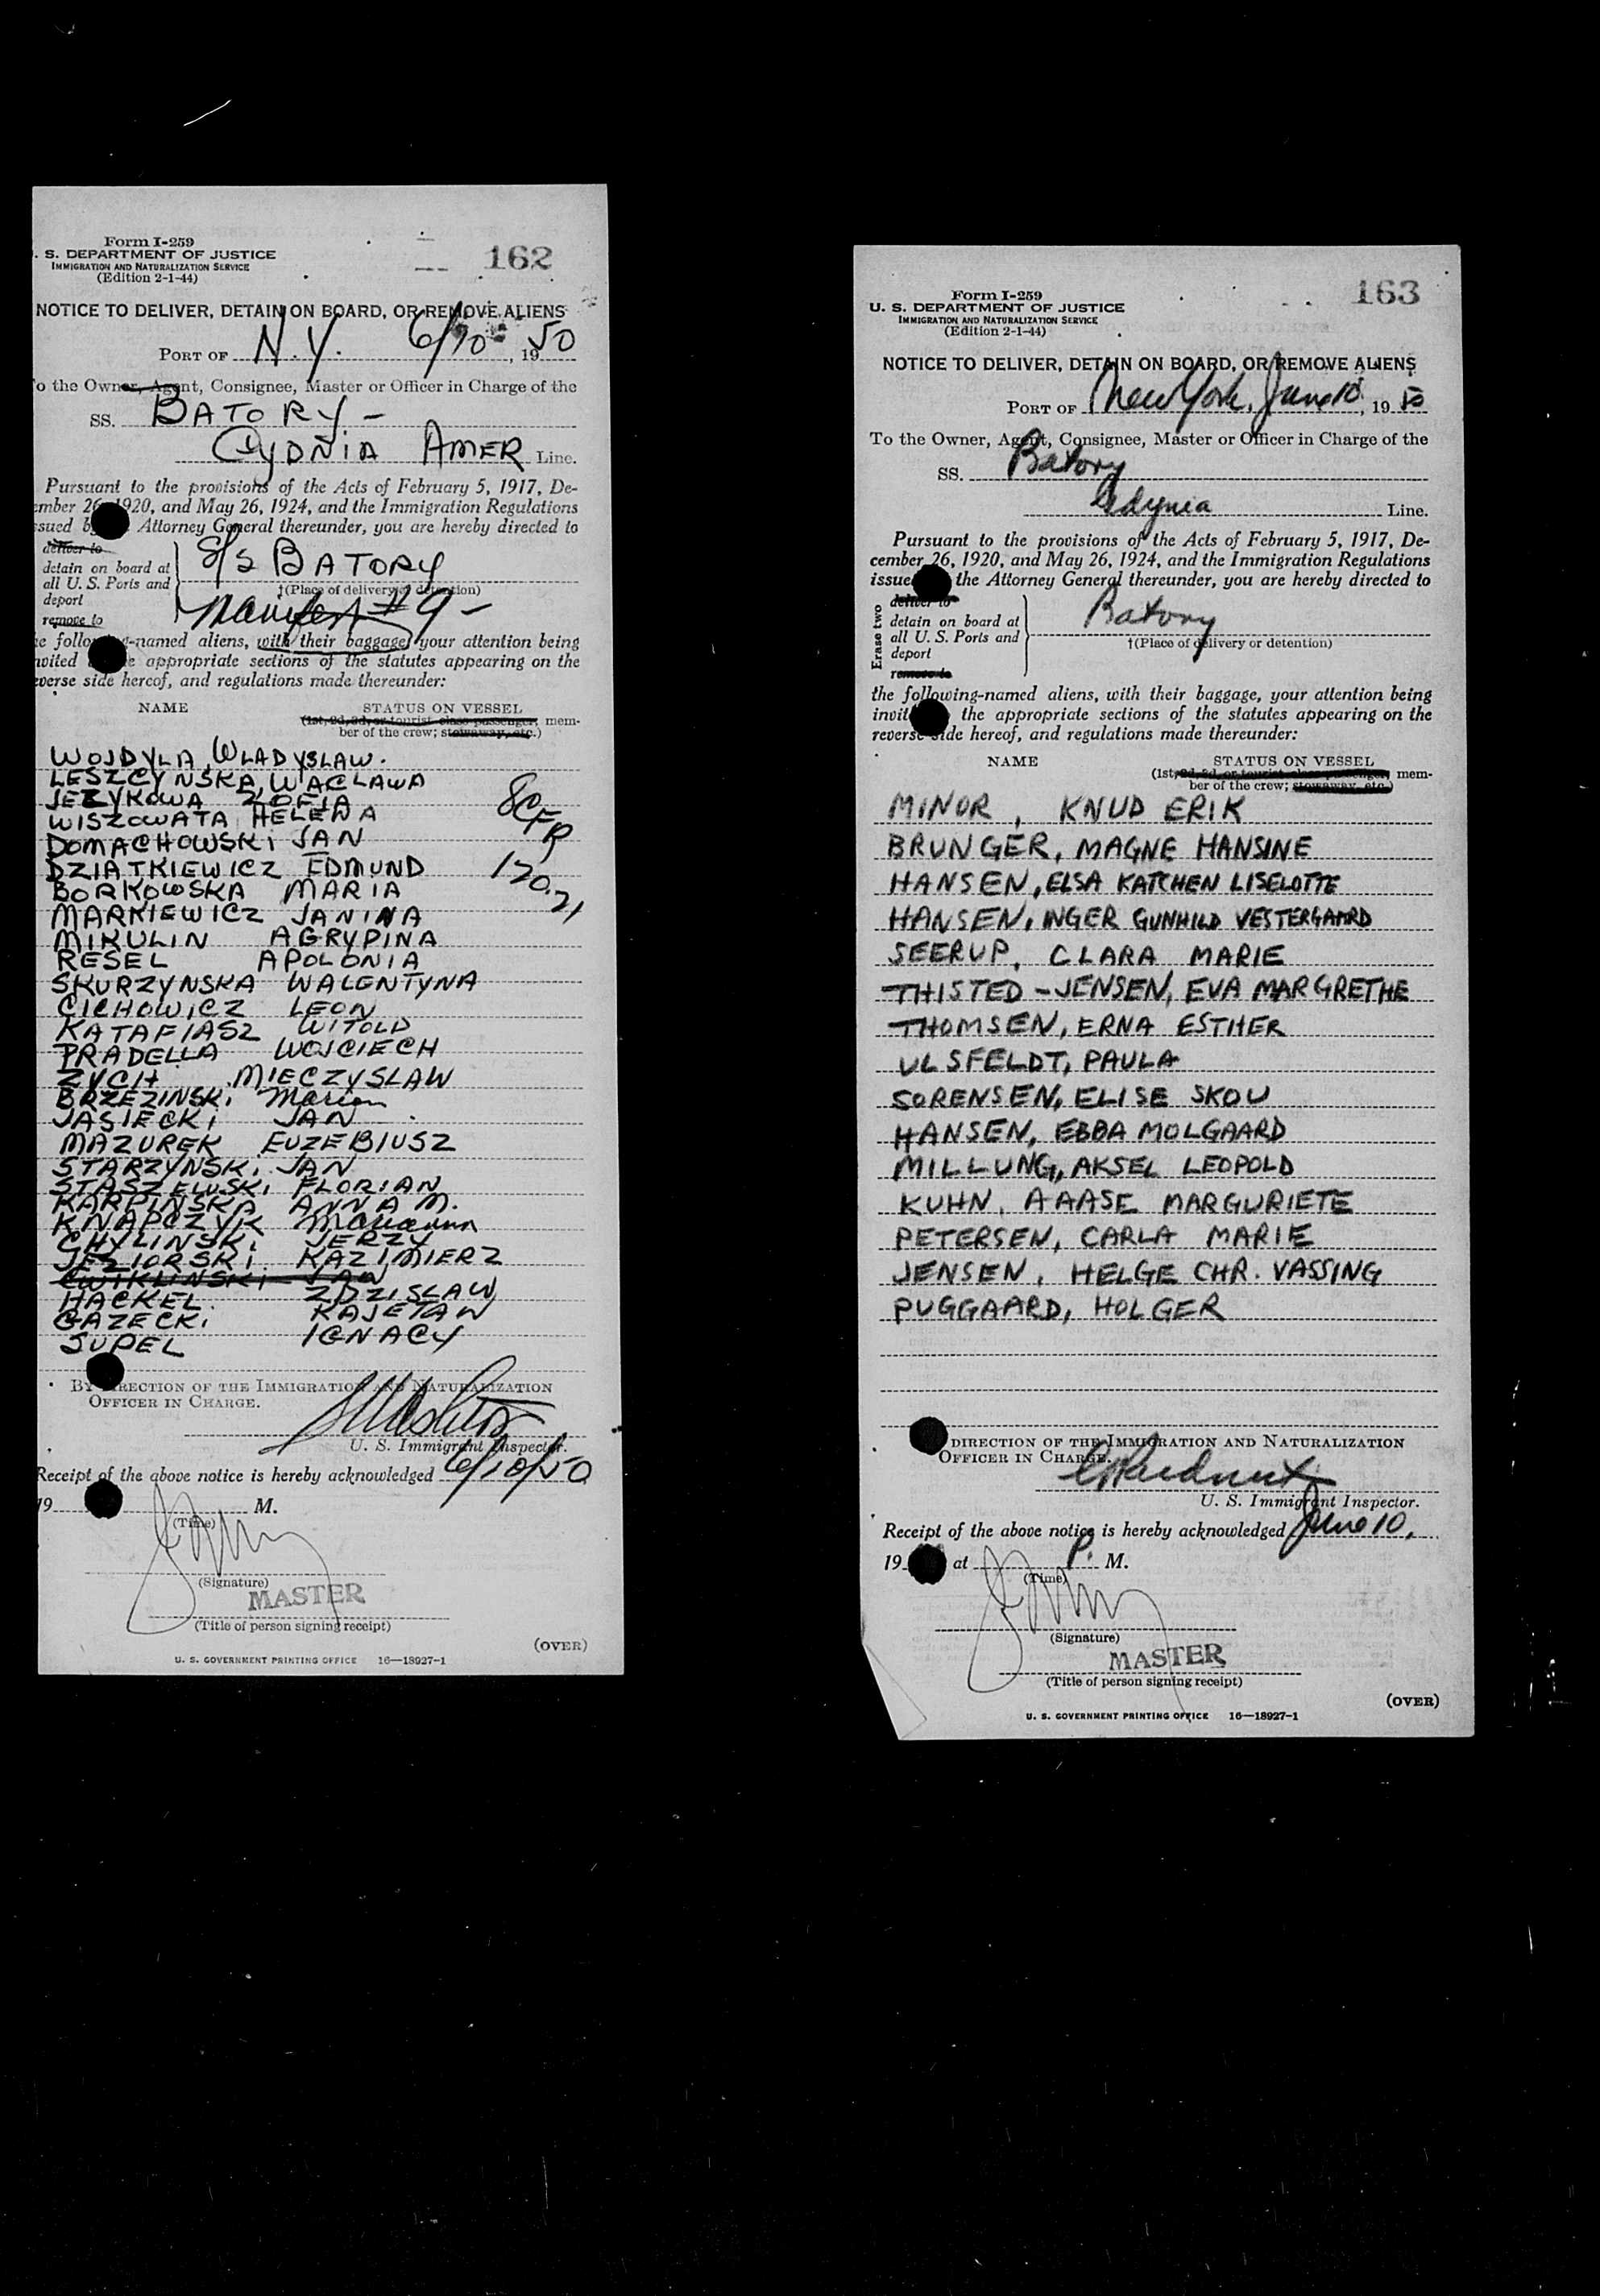 Form I-259
162
. S. DEPARTMENT OF JUSTICE
IMMIGRATION AND NATURALIZATION SERVICE
(Edition 2-1-44)
NOTICE TO DELIVER, DETAIN ON BOARD, OR REMOVE ALIENS
PORT OF N.Y. 6/10, 1950
o the Owner, Agent, Consignee, Master or Officer in Charge of the
SS. BATORY -
GYDNIA AMER Line.
Pursuant to the provisions of the Acts of February 5, 1917, De-
ember 26, 1920, and May 26, 1924, and the Immigration Regulations
ssued b Attorney General thereunder, you are hereby directed to
deliver to
detain on board at
all U. S. Ports and
deport
remove to
S/S BATORY
†(Place of delivery or detention)
Manifest #9-
e following-named aliens, with their baggage, your attention being
nvited e appropriate sections of the statutes appearing on the
everse side hereof, and regulations made thereunder:
NAME STATUS ON VESSEL
(1st, 2d, 3d, or tourist class passenger, mem-
ber of the crew; stowaway, etc.)
WOJDYLA WLADYSLAW.
LESZCYNSKA, WACLAWA
JEZYKOWA ZOFIA 8CFR
WISZOWATA HELENA
DOMACHOWSKI JAN
DZIATKIEWICZ EDMUND 120.21
BORKOWSKA MARIA
MARKIEWICZ JANINA
MIKULIN AGRYPINA
RESEL APOLONIA
SKURZYNSKA WALENTYNA
CICHOWICZ LEON
KATAFIASZ WITOLD
PRADELLA WOJCIECH
ZYCH MIECZYSLAW
BRZEZINSKI Marian
JASIECKI JAN
MAZUREK EUZEBIUSZ
STARZYNSKI JAN
STASZEWSKI FLORIAN
KARPINSKA ANNA M.
KNAPCZYK Marianna
CHYLINSKI JERZY
JEZIORSKI KAZIMIERZ
CWIKLINSKI JAN
HACKEL ZDZISLAW
GAZECKI KAJETAN
SUPEL IGNACY
BY DIRECTION OF THE IMMIGRATION AND NATURALIZATION
OFFICER IN CHARGE.
U. S. Immigrant Inspector.
Receipt of the above notice is hereby acknowledged 6/10/50
19 M.
(Time)
(Signature)
MASTER
(Title of person signing receipt)
(OVER)
U. S. GOVERNMENT PRINTING OFFICE 16—18927-1
163
Form I-259
U. S. DEPARTMENT OF JUSTICE
IMMIGRATION AND NATURALIZATION SERVICE
(Edition 2-1-44)
NOTICE TO DELIVER, DETAIN ON BOARD, OR REMOVE ALIENS
PORT OF New York, June 10, 1950
To the Owner, Agent, Consignee, Master or Officer in Charge of the
SS. Batory
Gdynia Line.
Pursuant to the provisions of the Acts of February 5, 1917, De-
cember 26, 1920, and May 26, 1924, and the Immigration Regulations
issue the Attorney General thereunder, you are hereby directed to
Erase two
deliver to
detain on board at
all U. S. Ports and
deport
remove to
Batory
†(Place of delivery or detention)
the following-named aliens, with their baggage, your attention being
invit the appropriate sections of the statutes appearing on the
reverse side hereof, and regulations made thereunder:
NAME STATUS ON VESSEL
(1st, 2d, 3d, or tourist class passenger, mem-
ber of the crew; stowaway, etc.)
MINOR, KNUD ERIK
BRUNGER, MAGNE HANSINE
HANSEN, ELSA KATCHEN LISELOTTE
HANSEN, INGER GUNHILD VESTERGAARD
SEERUP, CLARA MARIE
THISTED-JENSEN, EVA MARGRETHE
THOMSEN, ERNA ESTHER
ULSFELDT, PAULA
SORENSEN, ELISE SKOU
HANSEN, EBBA MOLGAARD
MILLUNG, AKSEL LEOPOLD
KUHN, AAASE MARGURIETE
PETERSEN, CARLA MARIE
JENSEN, HELGE CHR. VASSING
PUGGAARD, HOLGER
DIRECTION OF THE IMMIGRATION AND NATURALIZATION
OFFICER IN CHARGE.
U. S. Immigrant Inspector.
Receipt of the above notice is hereby acknowledged June 10,
19 at P. M.
(Time)
(Signature)
MASTER
(Title of person signing receipt)
(OVER)
U. S. GOVERNMENT PRINTING OFFICE 16—18927-1